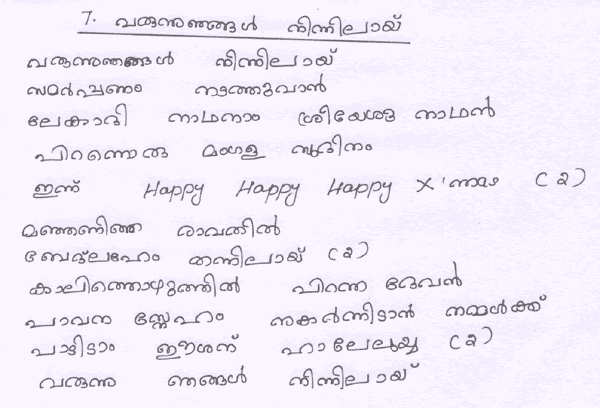 7. വരുന്നുഞങ്ങൾ നിന്നിലായ്
വരുന്നുഞങ്ങൾ നിന്നിലായ്
സമർപ്പണം നടത്തുവാൻ
ലോകാദി നാഥനാം ശ്രീയേശു നാഥൻ
പിറന്നൊരു മംഗള സുദിനം
ഇന്ന് Happy Happy Happy X'മസ (2)
മഞ്ഞണിഞ്ഞ രാവതിൽ
ബേത്‌ലഹേം തന്നിലായ് (2)
കാലിത്തൊഴുത്തിൽ പിറന്ന ദേവൻ
പാവന സ്നേഹം പകർന്നിടാൻ നമ്മൾക്ക്
പാടിടാം ഈശന് ഹാലേലുയ്യ (2)
വരുന്നു ഞങ്ങൾ നിന്നിലായ്